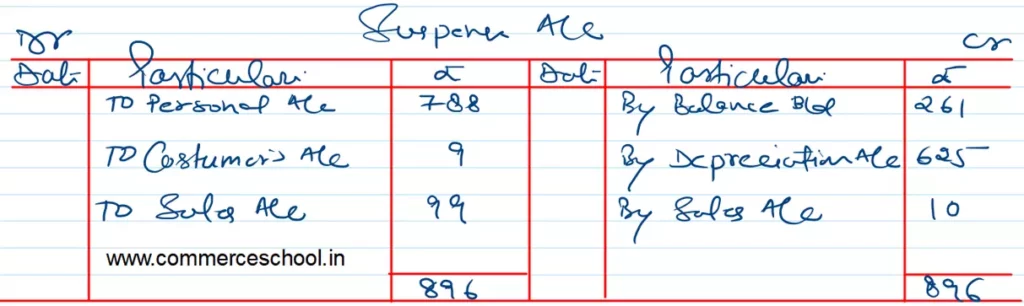 Suspense A/c
Dr Cr
Date Particulars ₹ Date Particulars ₹
To Personal A/c 788 By Balance B/d 261
To Costumer's A/c 9 By Depreciation A/c 625
To Sales A/c 99 By Sales A/c 10
www.commerceschool.in
896 896